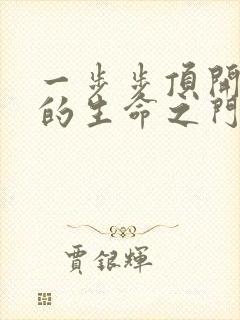 一步步頂開
的生命之門
賈銀輝